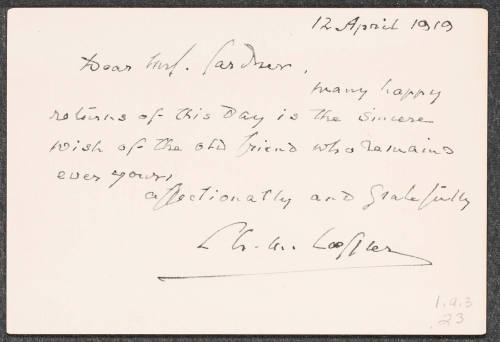 12 April 1919
Dear Mrs. Gardner,
many happy
returns of this Day is the sincere
wish of the old friend who remains
ever yours,
affectionatly and gratefully
Ch. M. Loeffler
1.a.3
23